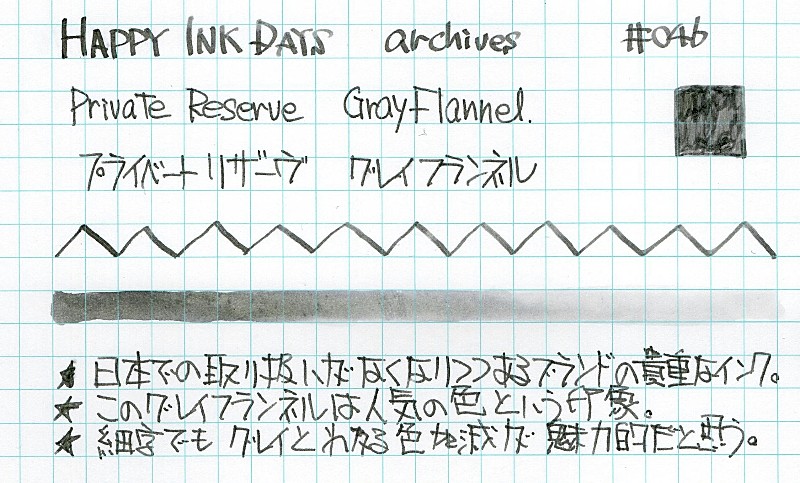 HAPPY INK DAYS archives #046
Private Reserve Gray Flannel.
プライベートリザーヴ グレイフランネル
★ 日本での取り扱いがなくなりつつあるブランドの貴重なインク。
★ このグレイフランネルは人気の色という印象。
★ 細字でもグレイとわかる色加減が魅力的だと思う。